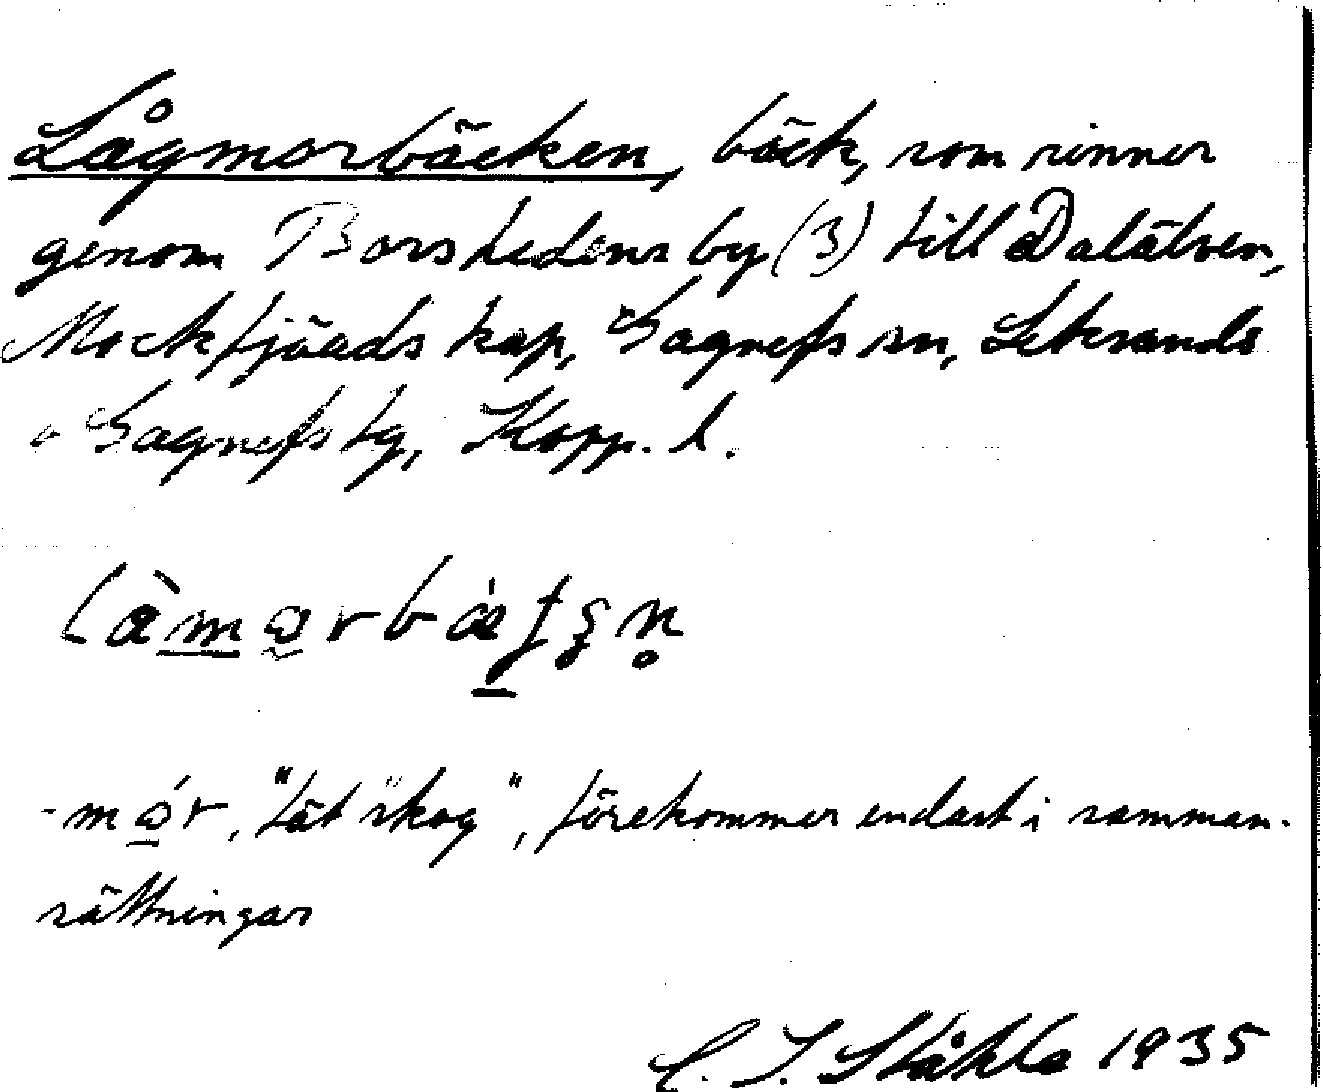 Lågmorbäcken, bäck, som rinner
genom Borshedens by (3) till Dalälven,
Mockfjärds kap, Gagnefs sn, Leksands
o Gagnefs tg, Kopp. l.
-mo̱r, "tät skog", förekommer endast i samman-
sättningar
C. I. Ståhle 1935